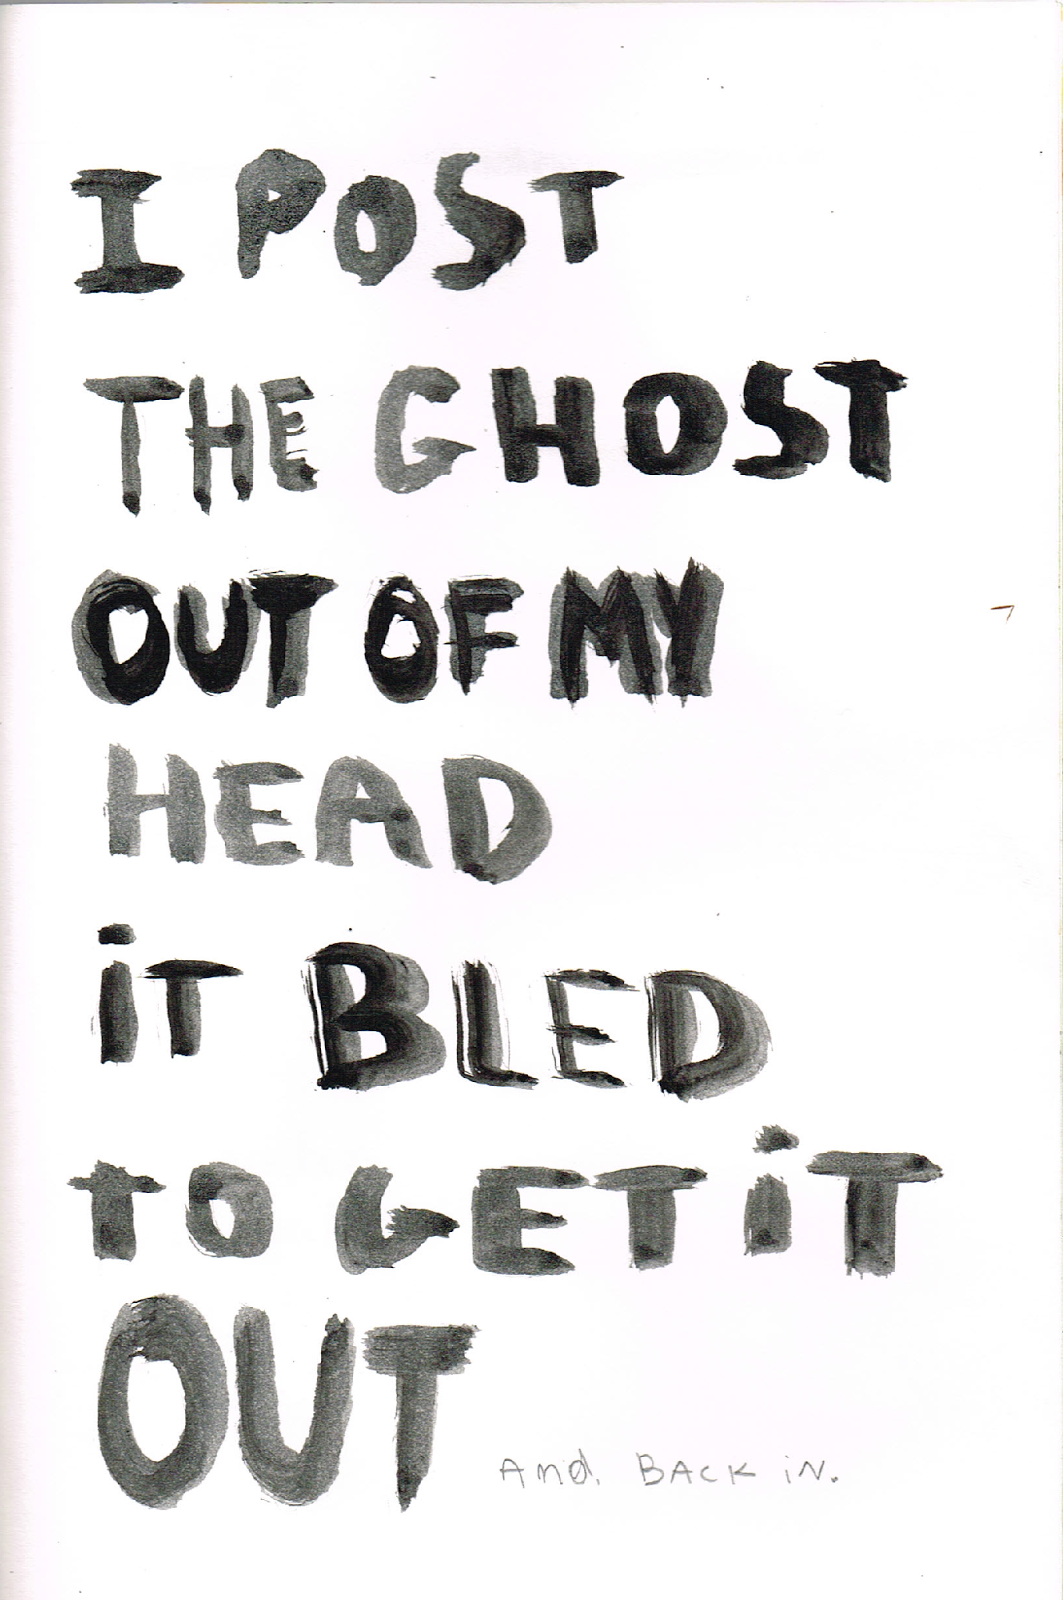 I POST
THE GHOST
OUT OF MY
HEAD
iT BLED
to GET iT
OUT And BACK iN.